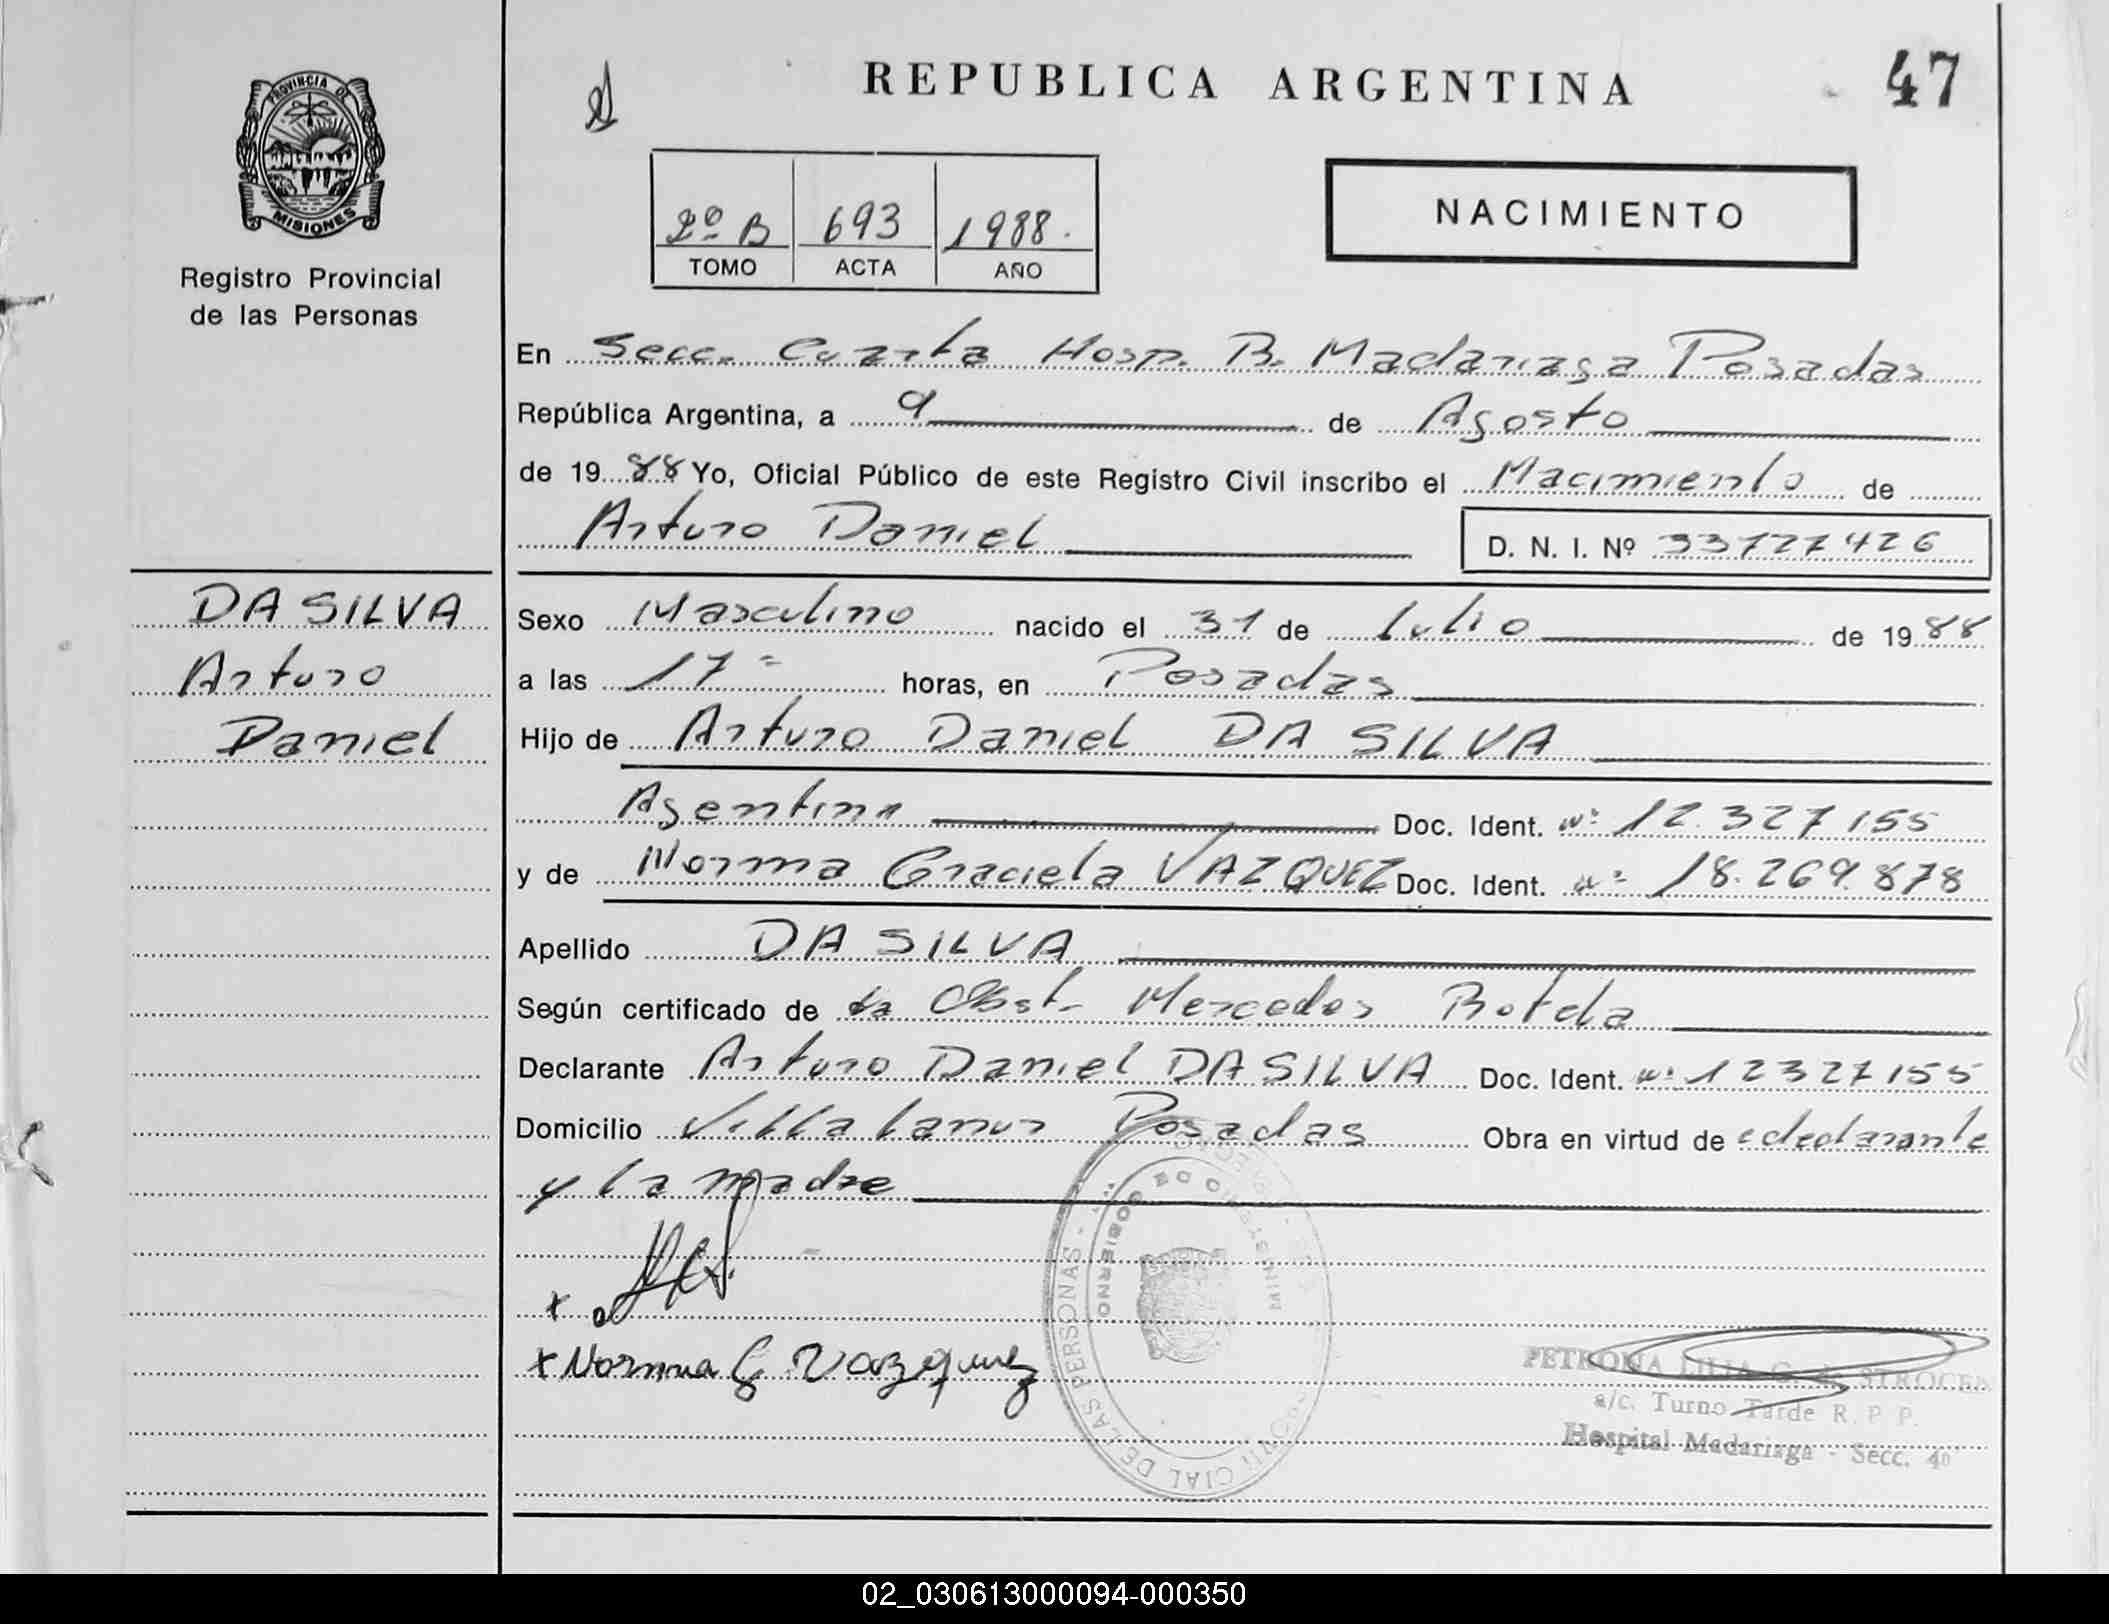 REPUBLICA ARGENTINA
47
PROVINCIA DE
MISIONES
Registro Provincial
de las Personas
2º B 693 1988.
TOMO ACTA AÑO
NACIMIENTO
En Secc. Cuarta Hosp. R. Madariaga Posadas
República Argentina, a 9 de Agosto
de 1988 Yo, Oficial Público de este Registro Civil inscribo el Nacimiento de
Arturo Daniel D. N. I. Nº 33727426
DA SILVA
Arturo
Daniel
Sexo Masculino nacido el 31 de Julio de 1988
a las 17 horas, en Posadas
Hijo de Arturo Daniel DA SILVA
Agentina Doc. Ident. nº 12.327155
y de Norma Graciela VAZQUEZ Doc. Ident. nº 18.269.878
Apellido DA SILVA
Según certificado de la Obst. Mercedes Botela
Declarante Arturo Daniel DA SILVA Doc. Ident. nº 12327155
Domicilio Villa Lanus Posadas Obra en virtud de declarante
y la madre
MINISTERIO DE GOBIERNO
DE LAS PERSONAS
x
x Norma G Vazquez
PETRONA LILIA G. de STROCEN
a/c. Turno Tarde R. P. P.
Hospital Madariaga - Secc. 4º
02_030613000094-000350